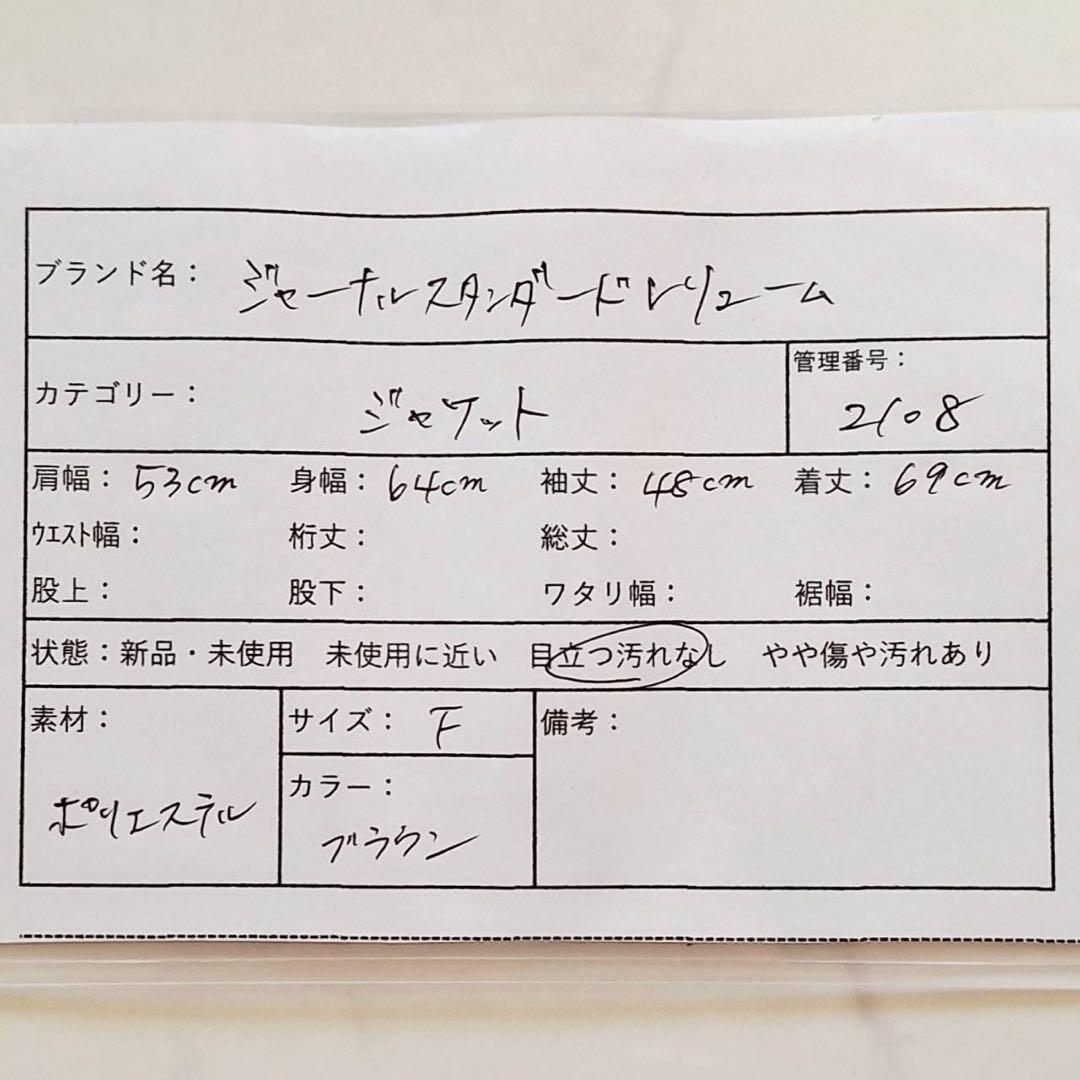 ブランド名： ジャーナルスタンダードレリューム
カテゴリー： ジャケット
管理番号：
2108
肩幅： 53cm 身幅： 64cm 袖丈： 48cm 着丈： 69cm
ウエスト幅： 裄丈： 総丈：
股上： 股下： ワタリ幅： 裾幅：
状態：新品・未使用 未使用に近い 目立つ汚れなし やや傷や汚れあり
素材：
ポリエステル
サイズ： F
カラー：
ブラウン
備考：